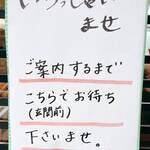 いらっしゃい
ませ
ご案内するまで
こちらでお待ち
(玄関前)
下さいませ。